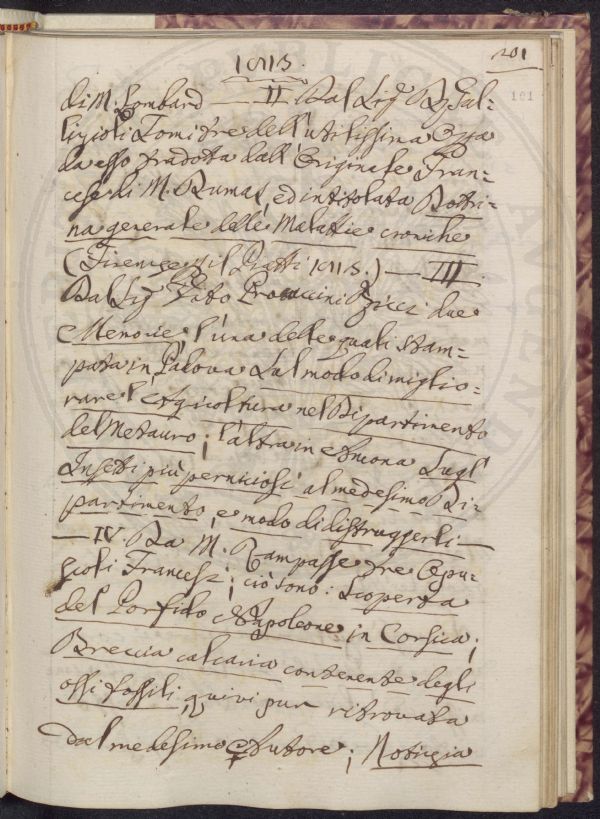 1813.
201
101
di M. Lombard — II Dal Sig.
ligioli Tomi tre dell'utilissima Opa
da esso tradotta dall'Originale Fran=
cese di M. Dumas, ed intitolata Dottri=
na generale delle Malattie croniche
(Firenze pel Piatti 1813.) — III.
Dal Sig. Vito Procaccini Ricci due
Memorie, l'una delle quali stam=
pata in Padova Sul modo di miglio=
rare l'Agricoltura nel Dipartimento
del Metauro; l'altra in Ancona Sugl'
Insetti più perniciosi al medesimo Di=
partimento, e modo di distruggerli —
— IV Da M. Rampasse tre Opu=
scoli Francesi; ciò sono: Scoperta
del Porfido Napoleone in Corsica;
Breccia calcaria contenente degli
ossi fossili, quivi pur ritrovata
dal medesimo Autore; Notizia